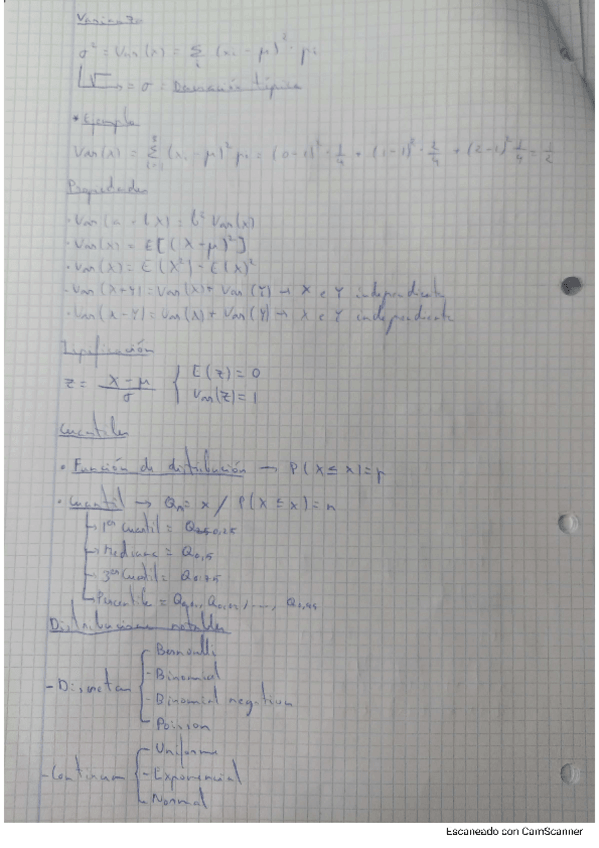 Varianza
σ² = Var(x) = Σ (xi - μ)² · pi
√ = σ = Desviación típica
• Ejemplo
Var(x) = Σ (xi - μ)² pi = (0-1)² · 1/4 + (1-1)² · 2/4 + (2-1)² 1/4 = 1/2
Propiedades
· Var(a - bX) = b² Var(x)
· Var(x) = E[(X-μ)²]
· Var(x) = E(X²) - E(X)²
· Var(X+Y) = Var(X) + Var(Y) → X e Y independiente
· Var(X-Y) = Var(X) + Var(Y) → X e Y independiente
Tipificación
z = X - μ / σ { E(z) = 0
Var(z) = 1
Cuantiles
• Función de distribución → P(X ≤ x) = p
• Cuantil → Qn = x / P(X ≤ x) = n
→ 1er Cuartil = Q0,25
→ Mediana = Q0,5
→ 3er Cuartil = Q0,75
→ Percentile = Q0,01, Q0,02, ...., Q0,99
Distribuciones notables
- Discretas { - Bernoulli
- Binomial
- Binomial negativa
- Poisson
- Continuas { - Uniforme
- Exponencial
- Normal
Escaneado con CamScanner